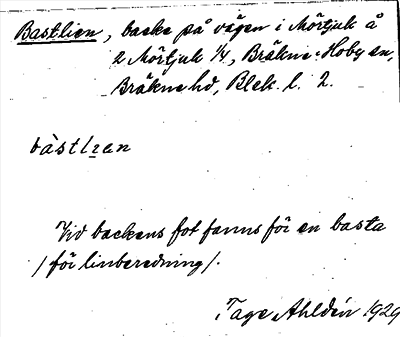 Bastlien, backe på vägen i Mörtjuk å
2 Mörtjuk 1/4, Bräkne-Hoby sn,
Bräkne hd, Blek. l. 2.
bàstlɪen
Vid backens fot fanns för en basta
/för linberedning/.
Tage Ahldén 1929